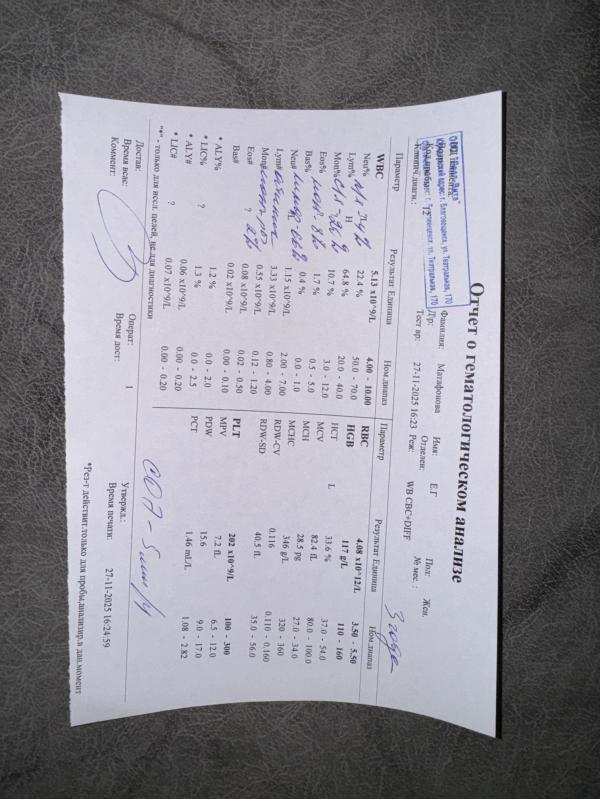 Отчет о гематологическом анализе
Фамилия: Матафонова Имя: Е.Г Пол: Жен.
Д/р: Отделен: № мес. :
12 Тест вр: 27-11-2025 16:23 Реж: WB CBC+DIFF
3 года
Параметр Результат Единица Ном.диапаз
WBC 5.13 x10^9/L 4.00 - 10.00
Neu% 22.4 % 50.0 - 70.0
Lym% H 64.8 % 20.0 - 40.0
Mon% 10.7 % 3.0 - 12.0
Eos% 1.7 % 0.5 - 5.0
Bas% 0.4 % 0.0 - 1.0
Neu# 1.15 x10^9/L 2.00 - 7.00
Lym# 3.33 x10^9/L 0.80 - 4.00
Mon# 0.55 x10^9/L 0.12 - 1.20
Eos# ? 0.08 x10^9/L 0.02 - 0.50
Bas# 0.02 x10^9/L 0.00 - 0.10
* ALY% 1.2 % 0.0 - 2.0
* LIC% ? 1.3 % 0.0 - 2.5
* ALY# 0.06 x10^9/L 0.00 - 0.20
* LIC# ? 0.07 x10^9/L 0.00 - 0.20
"*" - только для иссл. целей, не для диагностики
Параметр Результат Единица Ном.диапаз
RBC 4.08 x10^12/L 3.50 - 5.50
HGB 117 g/L 110 - 160
HCT L 33.6 % 37.0 - 54.0
MCV 82.4 fL 80.0 - 100.0
MCH 28.5 pg 27.0 - 34.0
MCHC 346 g/L 320 - 360
RDW-CV 0.116 0.110 - 0.160
RDW-SD 40.5 fL 35.0 - 56.0
PLT 202 x10^9/L 100 - 300
MPV 7.2 fL 6.5 - 12.0
PDW 15.6 9.0 - 17.0
PCT 1.46 mL/L 1.08 - 2.82
СОЭ - 5 мм/ч
Достав: Операт: 1 Утвержд.:
Время всас: Время дост: Время печати: 27-11-2025 16:24:59
Коммент:
*Рез-т действит.только для пробы,анализир.в дан.момент